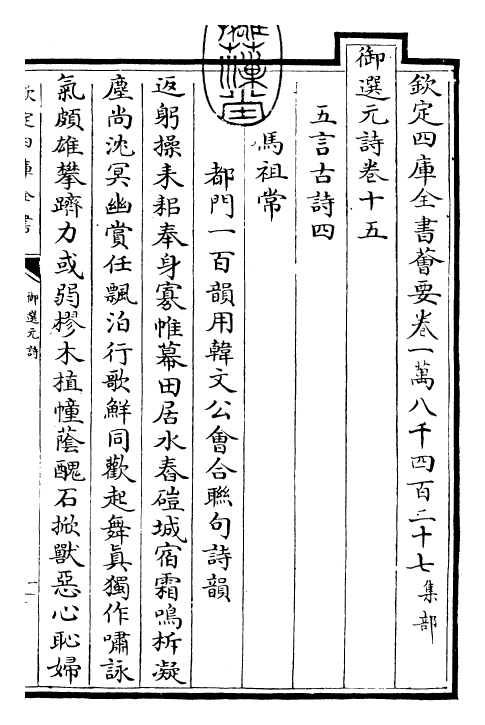 欽定四庫全書薈要卷一萬八千四百二十七 集部
御選元詩卷十五
五言古詩四
馬祖常
都門一百韻用韓文公會合聯句詩韻
返躬操耒耜奉身寡帷幕田居水舂磑城宿霜鳴柝凝
塵尚沈冥幽賞任飄泊行歌鮮同歡起舞真獨作嘯詠
氣頗雄攀躋力或弱樛木植幢蔭醜石掀獸惡心恥婦
欽定四庫全書
御選元詩
一